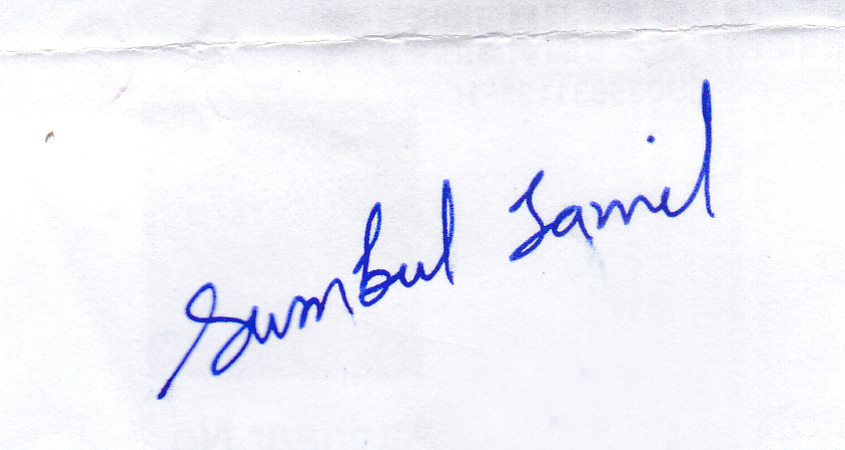 Sumbul Jamil